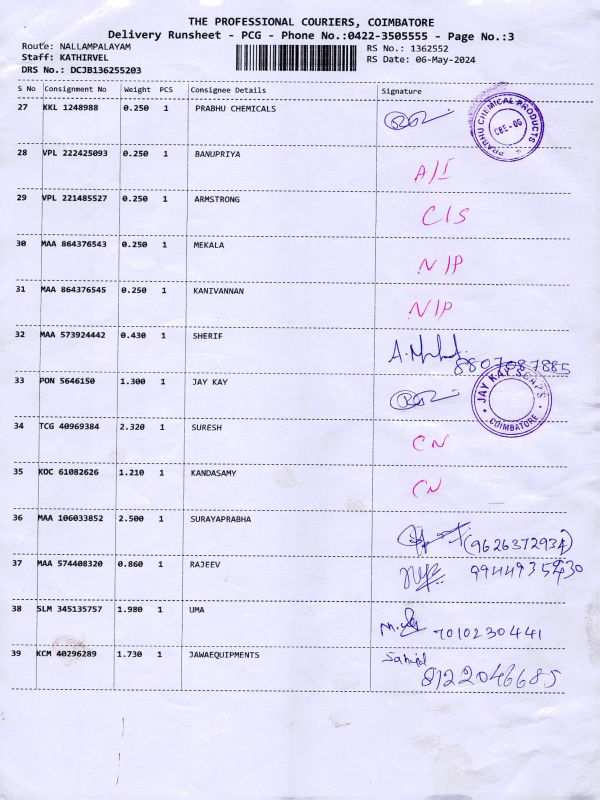 THE PROFESSIONAL COURIERS, COIMBATORE
Delivery Runsheet - PCG - Phone No.:0422-3505555 - Page No.:3
Route: NALLAMPALAYAM RS No.: 1362552
Staff: KATHIRVEL RS Date: 06-May-2024
DRS No.: DCJB136255203
S No Consignment No Weight PCS Consignee Details Signature
27 KKL 1248988 0.250 1 PRABHU CHEMICALS
PRABHU CHEMICAL PRODUCTS
CBE-06
28 VPL 222425093 0.250 1 BANUPRIYA
A/I
29 VPL 221485527 0.250 1 ARMSTRONG
C/S
30 MAA 864376543 0.250 1 MEKALA
N/P
31 MAA 864376545 0.250 1 KANIVANNAN
N/P
32 MAA 573924442 0.430 1 SHERIF
8807087885
33 PON 5646150 1.300 1 JAY KAY
JAY KAY
COIMBATORE
34 TCG 40969384 2.320 1 SURESH
CN
35 KOC 61082626 1.210 1 KANDASAMY
CN
36 MAA 106033852 2.500 1 SURAYAPRABHA
(9626372934)
37 MAA 574408320 0.860 1 RAJEEV
38 SLM 345135757 1.980 1 UMA
7010230441
39 KCM 40296289 1.730 1 JAWAEQUIPMENTS
8122046685